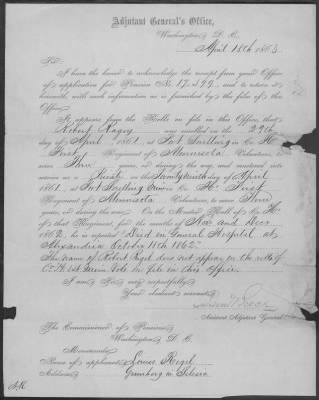 Adjutant General's Office,
Washington, D. C.
April 18th 1863.
Sir:
I have the honor to acknowledge the receipt from your Office
of application for Pension No. 17,299, and to return it
herewith, with such information as is furnished by the files of this
Office.
It appears from the Rolls on file in this Office, that
Robert was enrolled on the 29th
day of April, 1861, at Fort Snelling in Co. H,
First Regiment of Minnesota Volunteers, to
serve Three years, or during the war, and mustered into
service as a Private on the Twenty ninth day of April
1861, at Fort Snelling in Co. H, First
Regiment of Minnesota Volunteers, to serve Three
years, or during the war. On the Muster Roll of Co. H
of that Regiment, for the months of Nov and Dec,
1862, he is reported "Died in General Hospital at
Alexandria October 18th 1862."
The name of Robert Rigel does not appear on the rolls of
Co. H 1st Vols on file in this Office.
I am, Sir, very respectfully,
Your obedient servant,
Assistant Adjutant General
The Commissioner of Pensions,
Washington, D. C.
Memoranda:
Name of applicant, Louis Rigel
Address, Grunberg in Silesia